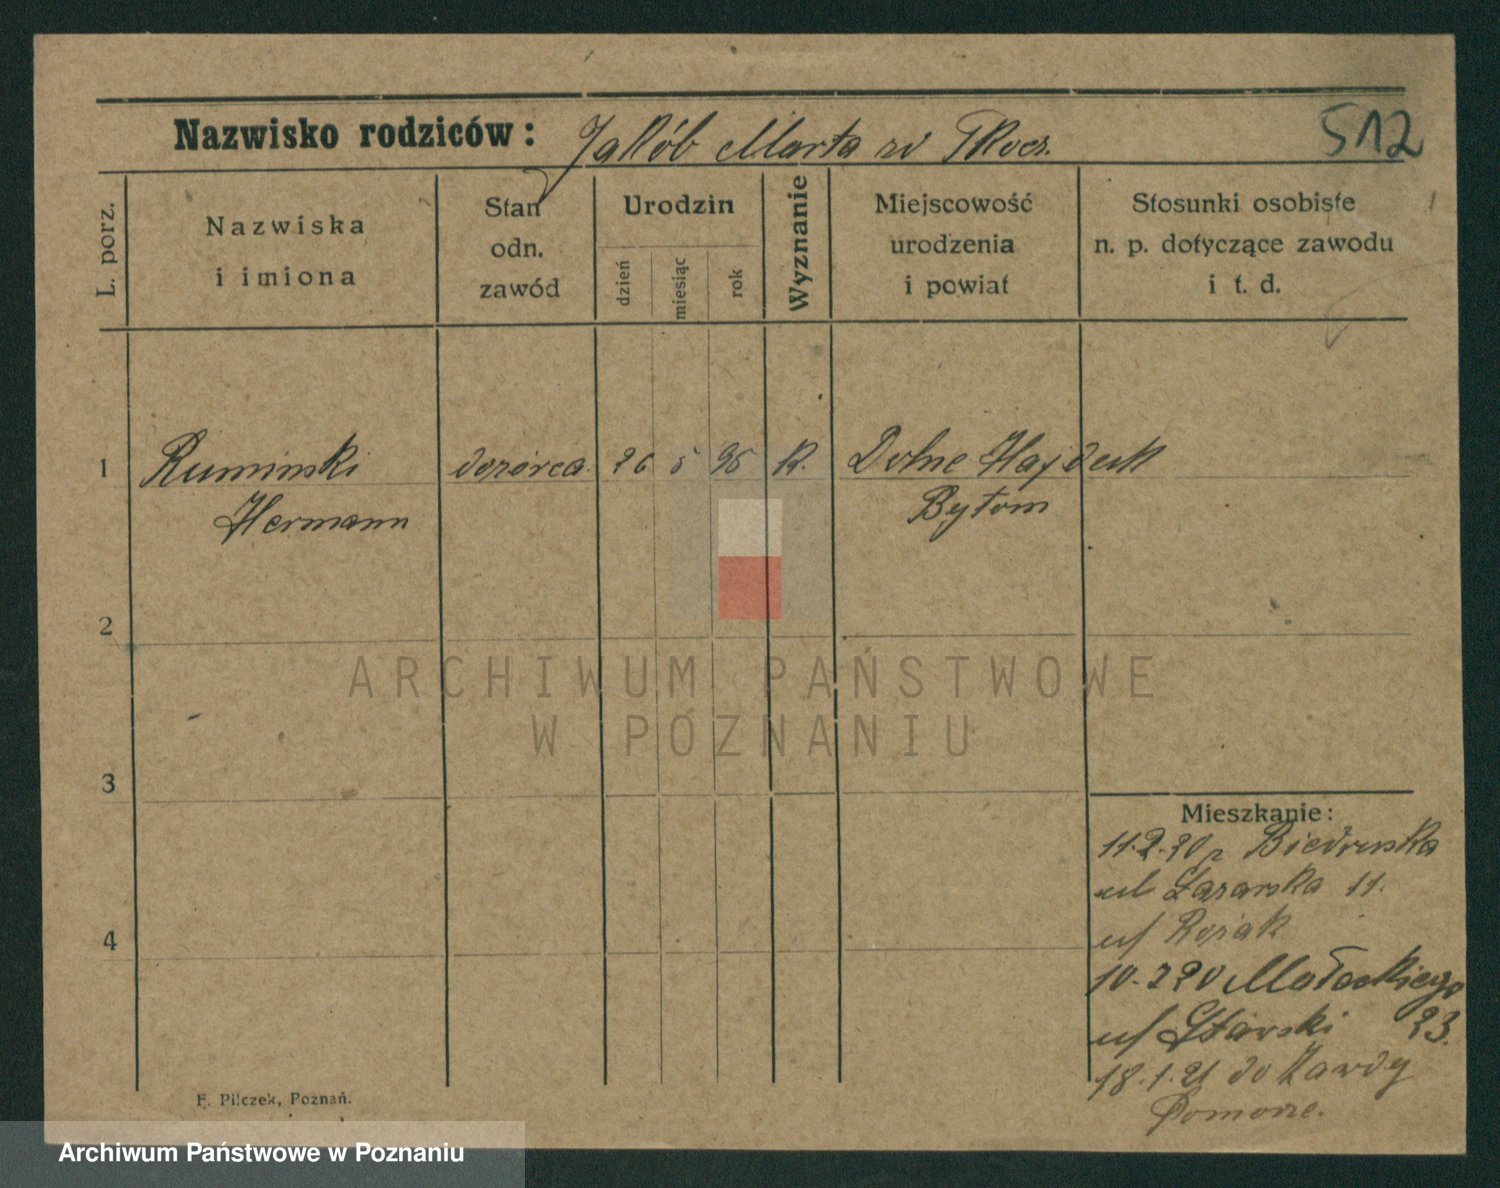 Nazwisko rodziców: Jakób Marta zd Tkocz. 512
L. porz.
Nazwiska
i imiona
Stan
odn.
zawód
Urodzin
dzień
miesiąc
rok
Wyznanie
Miejscowość
urodzenia
i powiat
Stosunki osobiste
n. p. dotyczące zawodu
i t. d.
1 Ruminski dozórca. 26 5 95 K. Dolne Hajduk
Hermann Bytom
2
ARCHIWUM PAŃSTWOWE
W POZNANIU
3
Mieszkanie:
11.2.20 Biedruska
ul Łazarska 11.
u/
4
10.220 Małeckiego
u/ 23.
18.1.21 do
Pomorze.
F. Pilczek, Poznań.
Archiwum Państwowe w Poznaniu